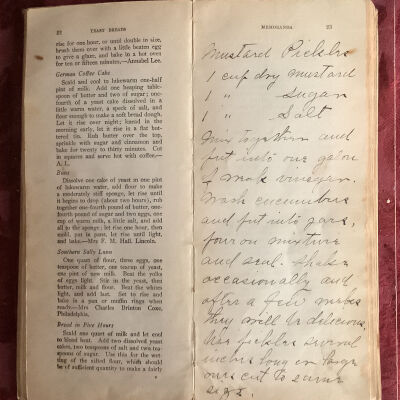 22 YEAST BREADS
rise for one hour, or until double in size,
brush them over with a little beaten egg
to give a glaze, and bake in a hot oven
for ten or fifteen minutes.—Annabel Lee.
German Coffee Cake
Scald and cool to lukewarm one-half
pint of milk. Add one heaping table-
spoon of butter and two of sugar; one-
fourth of a yeast cake dissolved in a
little warm water, a speck of salt, and
flour enough to make a soft bread dough.
Let it rise over night; knead in the
morning early, let it rise in a flat but-
tered tin. Rub butter over the top,
sprinkle with sugar and cinnamon and
bake for twenty to thirty minutes. Cut
in squares and serve hot with coffee.—
A. L.
Buns
Dissolve one cake of yeast in one pint
of lukewarm water, add flour to make
a moderately stiff sponge, let rise until
it begins to drop (about two hours), rub
together one-fourth pound of butter, one-
fourth pound of sugar and two eggs, one
cup of warm milk, a little salt, and add
all to the sponge; let rise one hour, then
mold, put in pans, let rise until light,
and bake.—Mrs F. M. Hall, Lincoln.
Southern Sally Lunn
One quart of flour, three eggs, one
teaspoon of butter, one teacup of yeast,
one pint of new milk. Beat the yolks
of eggs light. Stir in the yeast, then
butter, milk and flour. Beat the whites
light, and add last. Set to rise and
bake in a pan or muffin rings when
ready.—Mrs Charles Brinton Coxe,
Philadelphia.
Bread in Five Hours
Scald one quart of milk and let cool
to blood heat. Add two dissolved yeast
cakes, two teaspoons of salt and two tea-
spoons of sugar. Use this for the wet-
ting of the sifted flour, which should
be of sufficient quantity to make a fairly
MEMORANDA 23
Mustard Pickles
1 cup dry mustard
1 " Sugar
1 " Salt
Mix together and
put into one galon
of weak vinegar.
Wash cucumbers
and put into jars,
pour on mixture
and seal. Shake
occasionally and
after a few weeks
they will be delicious
pickles several
inches long or large
ones cut to same
size.